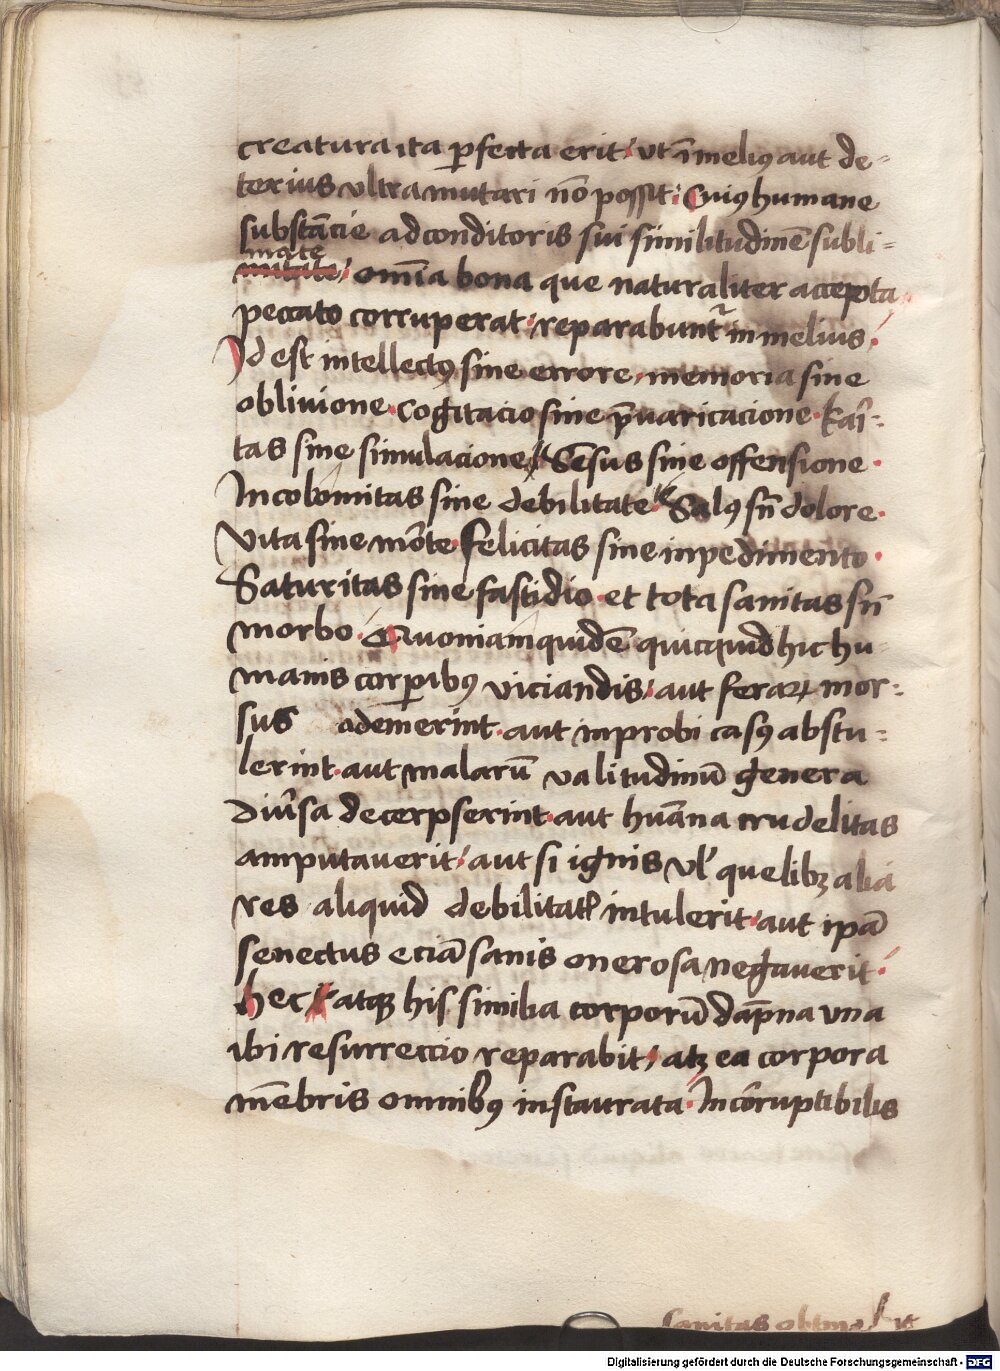 creatura ita ꝑfecta erit· vt ī meliꝰ aut de-
terius vltra mutari nō possit· Cuiꝰ humane
substācie ad conditoris sui similitudinē subli-
mate
omīa bona que naturaliter accepta
peccato corruperat· reparabuntᷣ in melius·
Id est intellectꝰ sine errore· memoria sine
obliuione· Cogitacio sine p̄uaricacione· kari-
tas sine simulacione· Sēsus sine offensione·
Incolomitas sine debilitate· Salꝰ sn̄ dolore·
Vita sine mōte· felicitas sine inpedimento·
Saturitas sine fastidio· et tota sanitas sn̄
morbo· Quoniam quidē quicquid hic hu-
manis corꝑibꝰ viciandis· aut feraꝝ mor-
sus ademerint· aut inprobi casꝰ abstu-
lerint· aut malarū valitudinū genera
diu̾sa decerpserint· aut huāna crudelitas
amputauerit· aut si ignis vl̕ quelibꝫ alia
res aliquid debilitatꝭ intulerit· aut ipā
senectus eciā sanis onerosa negauerit·
hec atqꝫ his similia corporū dāpna vna
ibi resurreccio reparabit· atqꝫ ea corpora
mēbris omnibꝰ instaurata· Incōruptibilis
sanitas obtinebit
Digitalisierung gefördert durch die Deutsche Forschungsgemeinschaft - DFG